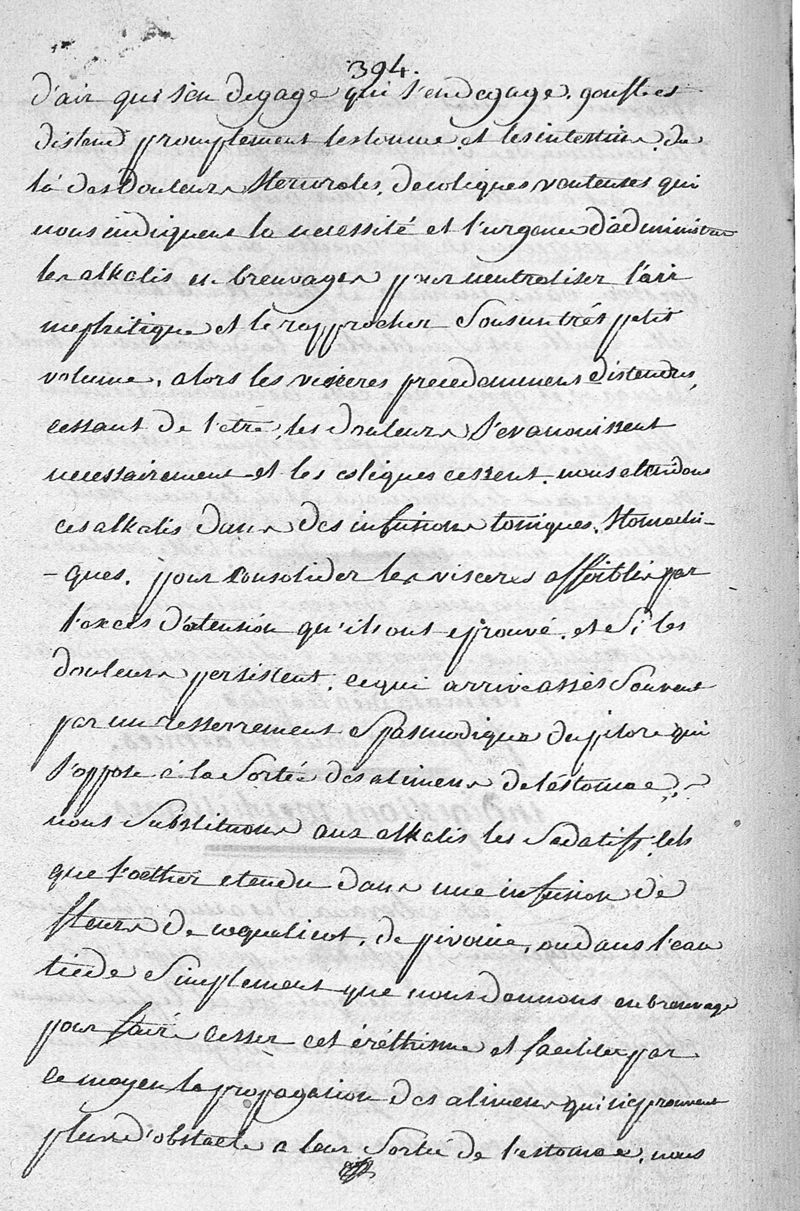 394.
d'air qui s'en degage qui s'en degage, gonfle et
distend promptement lestomac et les intestins, de
là des douleurs de coliques venteuses qui
nous indiquent la necessité et l'urgence d'administrer
les alkalis en breuvages pour neutraliser l'air
mephitique et le rapprocher sous un trés petit
volume, alors les visceres precedamment distendus,
cessant de l'etre les douleurs s'evanouissent
necessairement et les coliques cessent. nous etendons
ces alkalis dans des infusions toniques, stomachi-
-ques, pour consolider les visceres affoiblis par
l'exces d'extension qu'ils ont eprouvé, et si les
douleurs persistent, ce qui arrive assés souvent
par un resserrement spasmodique du pilore qui
s'oppose à la sortie des alimens de l'estomac,
nous substituons aux alkalis les sedatifs, tels
que l'oether etendu dans une infusion de
fleurs de coquelicot, de pivoine, ou dans l'eau
tiede simplement que nous donnons en breuvage
pour faire cesser cet éréthisme et faciliter par
ce moyen la propagation des alimens qui n'eprouvent
plus d'obstacle a leur sortie de l'estomac, nous